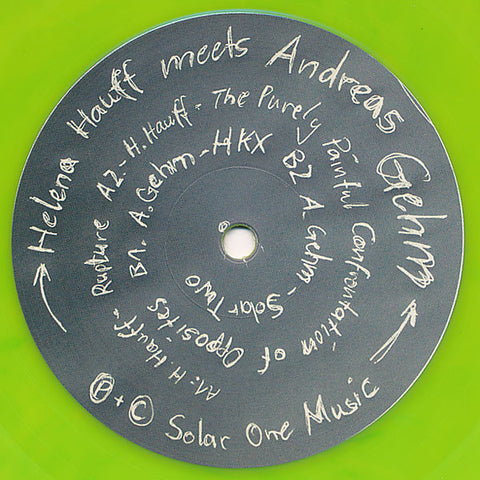 Helena Hauff meets Andreas Gehm
A1: H. Hauff - Rupture A2.- H. Hauff - The Purely Painful Confrontation of Opposites
B1. A. Gehm - HKX B2 A. Gehm - Solar Two
℗ + © Solar One Music